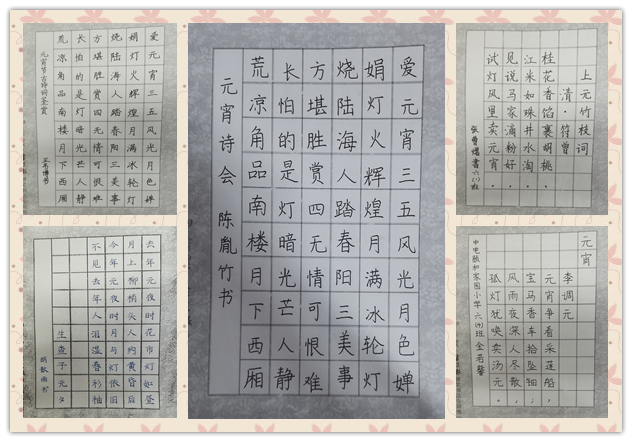 爱元宵三五风光月色婵
娟灯火辉煌月满冰轮灯
烧陆海人踏春阳三美事
方堪胜赏四无情可恨难
长怕的是灯暗光芒人静
荒凉角品南楼月下西厢
元宵节古诗词鉴赏
去年元夜时花市灯如昼
月上柳梢头人约黄昏后
今年元夜时月与灯依旧
不见去年人泪湿春衫袖
生查子元夕
爱元宵三五风光月色婵
娟灯火辉煌月满冰轮灯
烧陆海人踏春阳三美事
方堪胜赏四无情可恨难
长怕的是灯暗光芒人静
荒凉角品南楼月下西厢
元宵诗会 陈胤竹书
上元竹枝词
清·符曾
桂花香馅裹胡桃,
江米如珠井水淘。
见说马家滴粉好,
试灯风里卖元宵。
元宵
李调元
元宵争看采莲船,
宝马香车拾坠钿;
风雨夜深人尽散,
孤灯犹唤卖汤元。